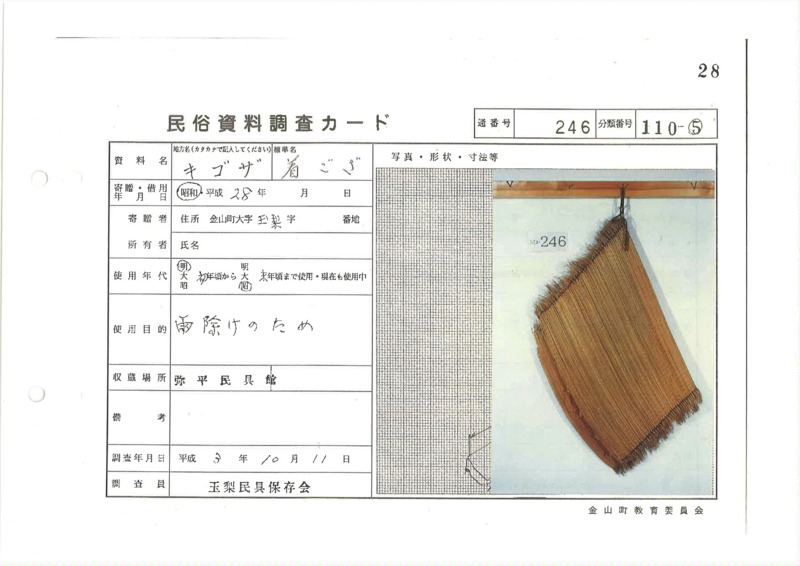 28
民俗資料調査カード
通番号 246 分類番号 110-⑤
資料名 地方名(カタカナで記入してください) キゴザ 標準名 着ござ
写真・形状・寸法等
寄贈・借用年月日 昭和・平成 28年 月 日
寄贈者 住所 金山町大字 玉梨 字 番地
所有者 氏名
使用年代 明 大 昭 初年頃から 明 大 昭 末年頃まで使用・現在も使用中
使用目的 雨除けのため
収蔵場所 弥平民具館
備考
調査年月日 平成 3年 10月 11日
調査員 玉梨民具保存会
No.246
金山町教育委員会